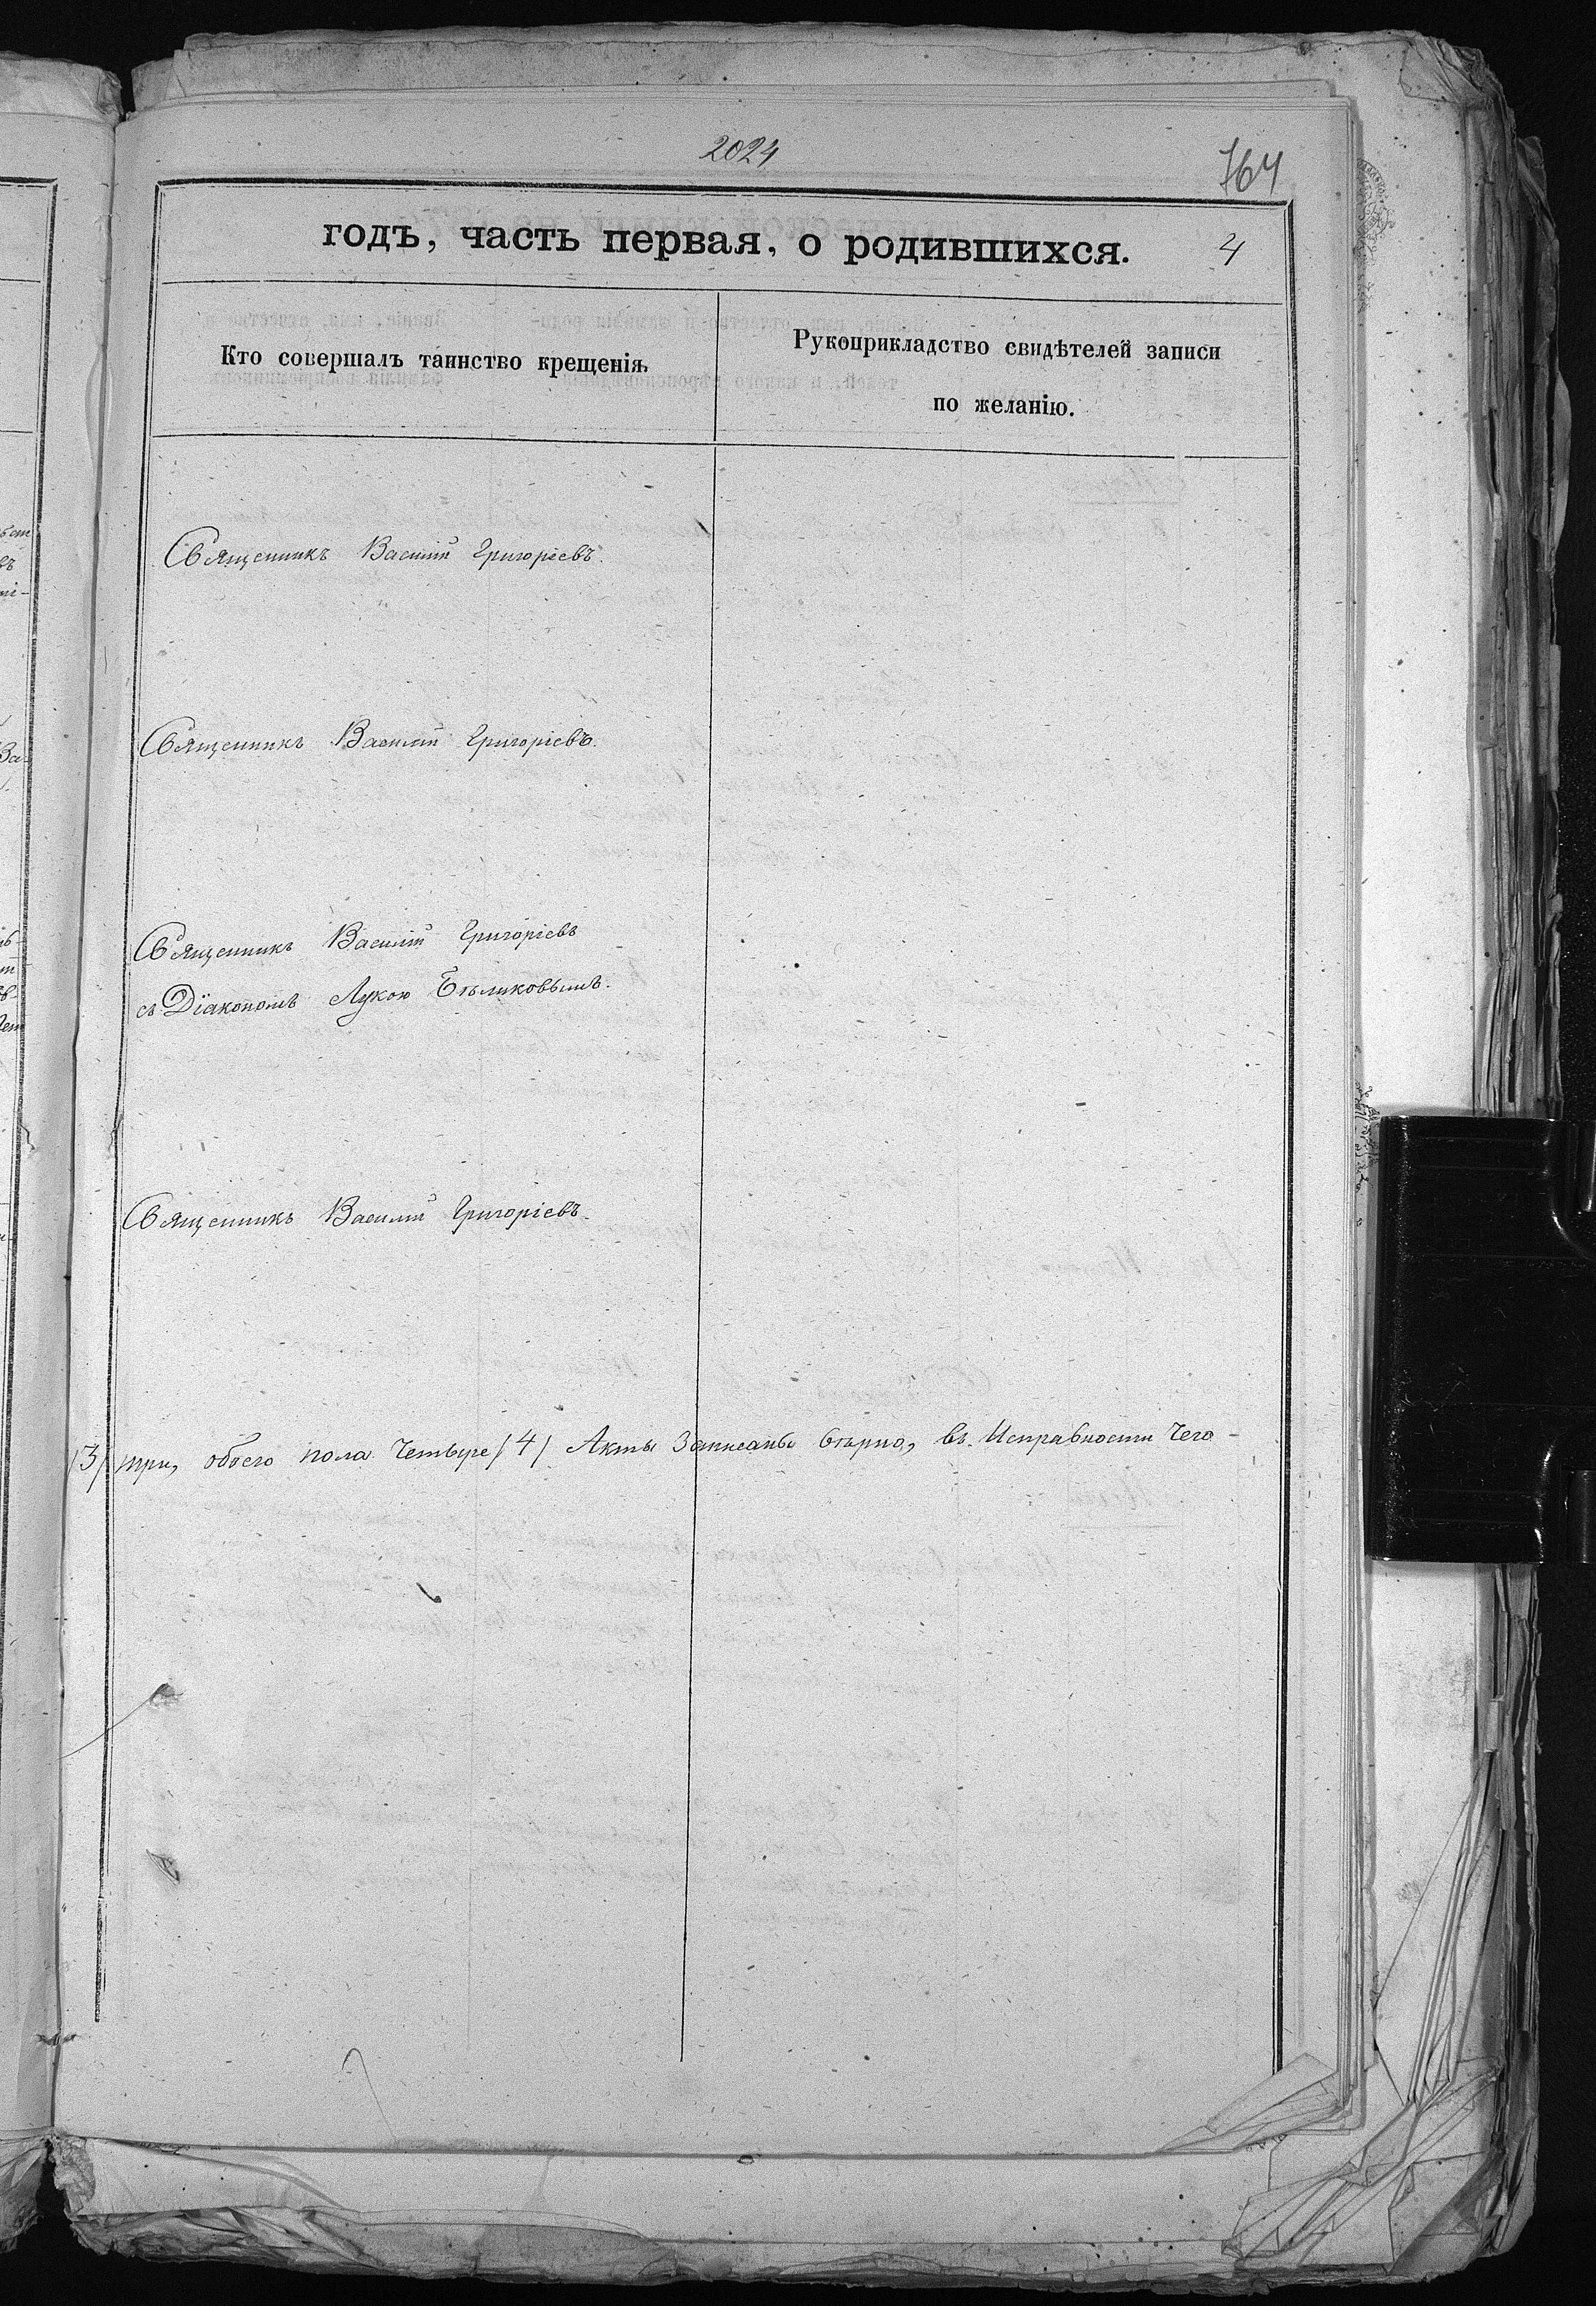 2024
764
годъ, часть первая, о родившихся.
4
Кто совершалъ таинство крещенія.
Рукоприкладство свидѣтелей записи
по желанію.
Священникъ Василій Григоріевъ.
Священникъ Василій Григоріевъ.
Священникъ Василій Григоріевъ
съ Діакономъ Лукою Бѣликовымъ.
Священникъ Василій Григоріевъ.
/3/ три, обоего пола Четыре /4/ Акты Записаны вѣрно, въ Исправности Чего